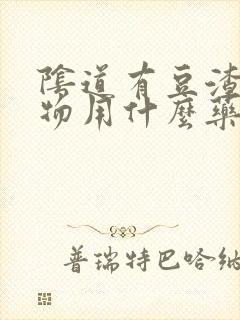 陰道有豆渣
物用什麼藥
普瑞特巴哈納